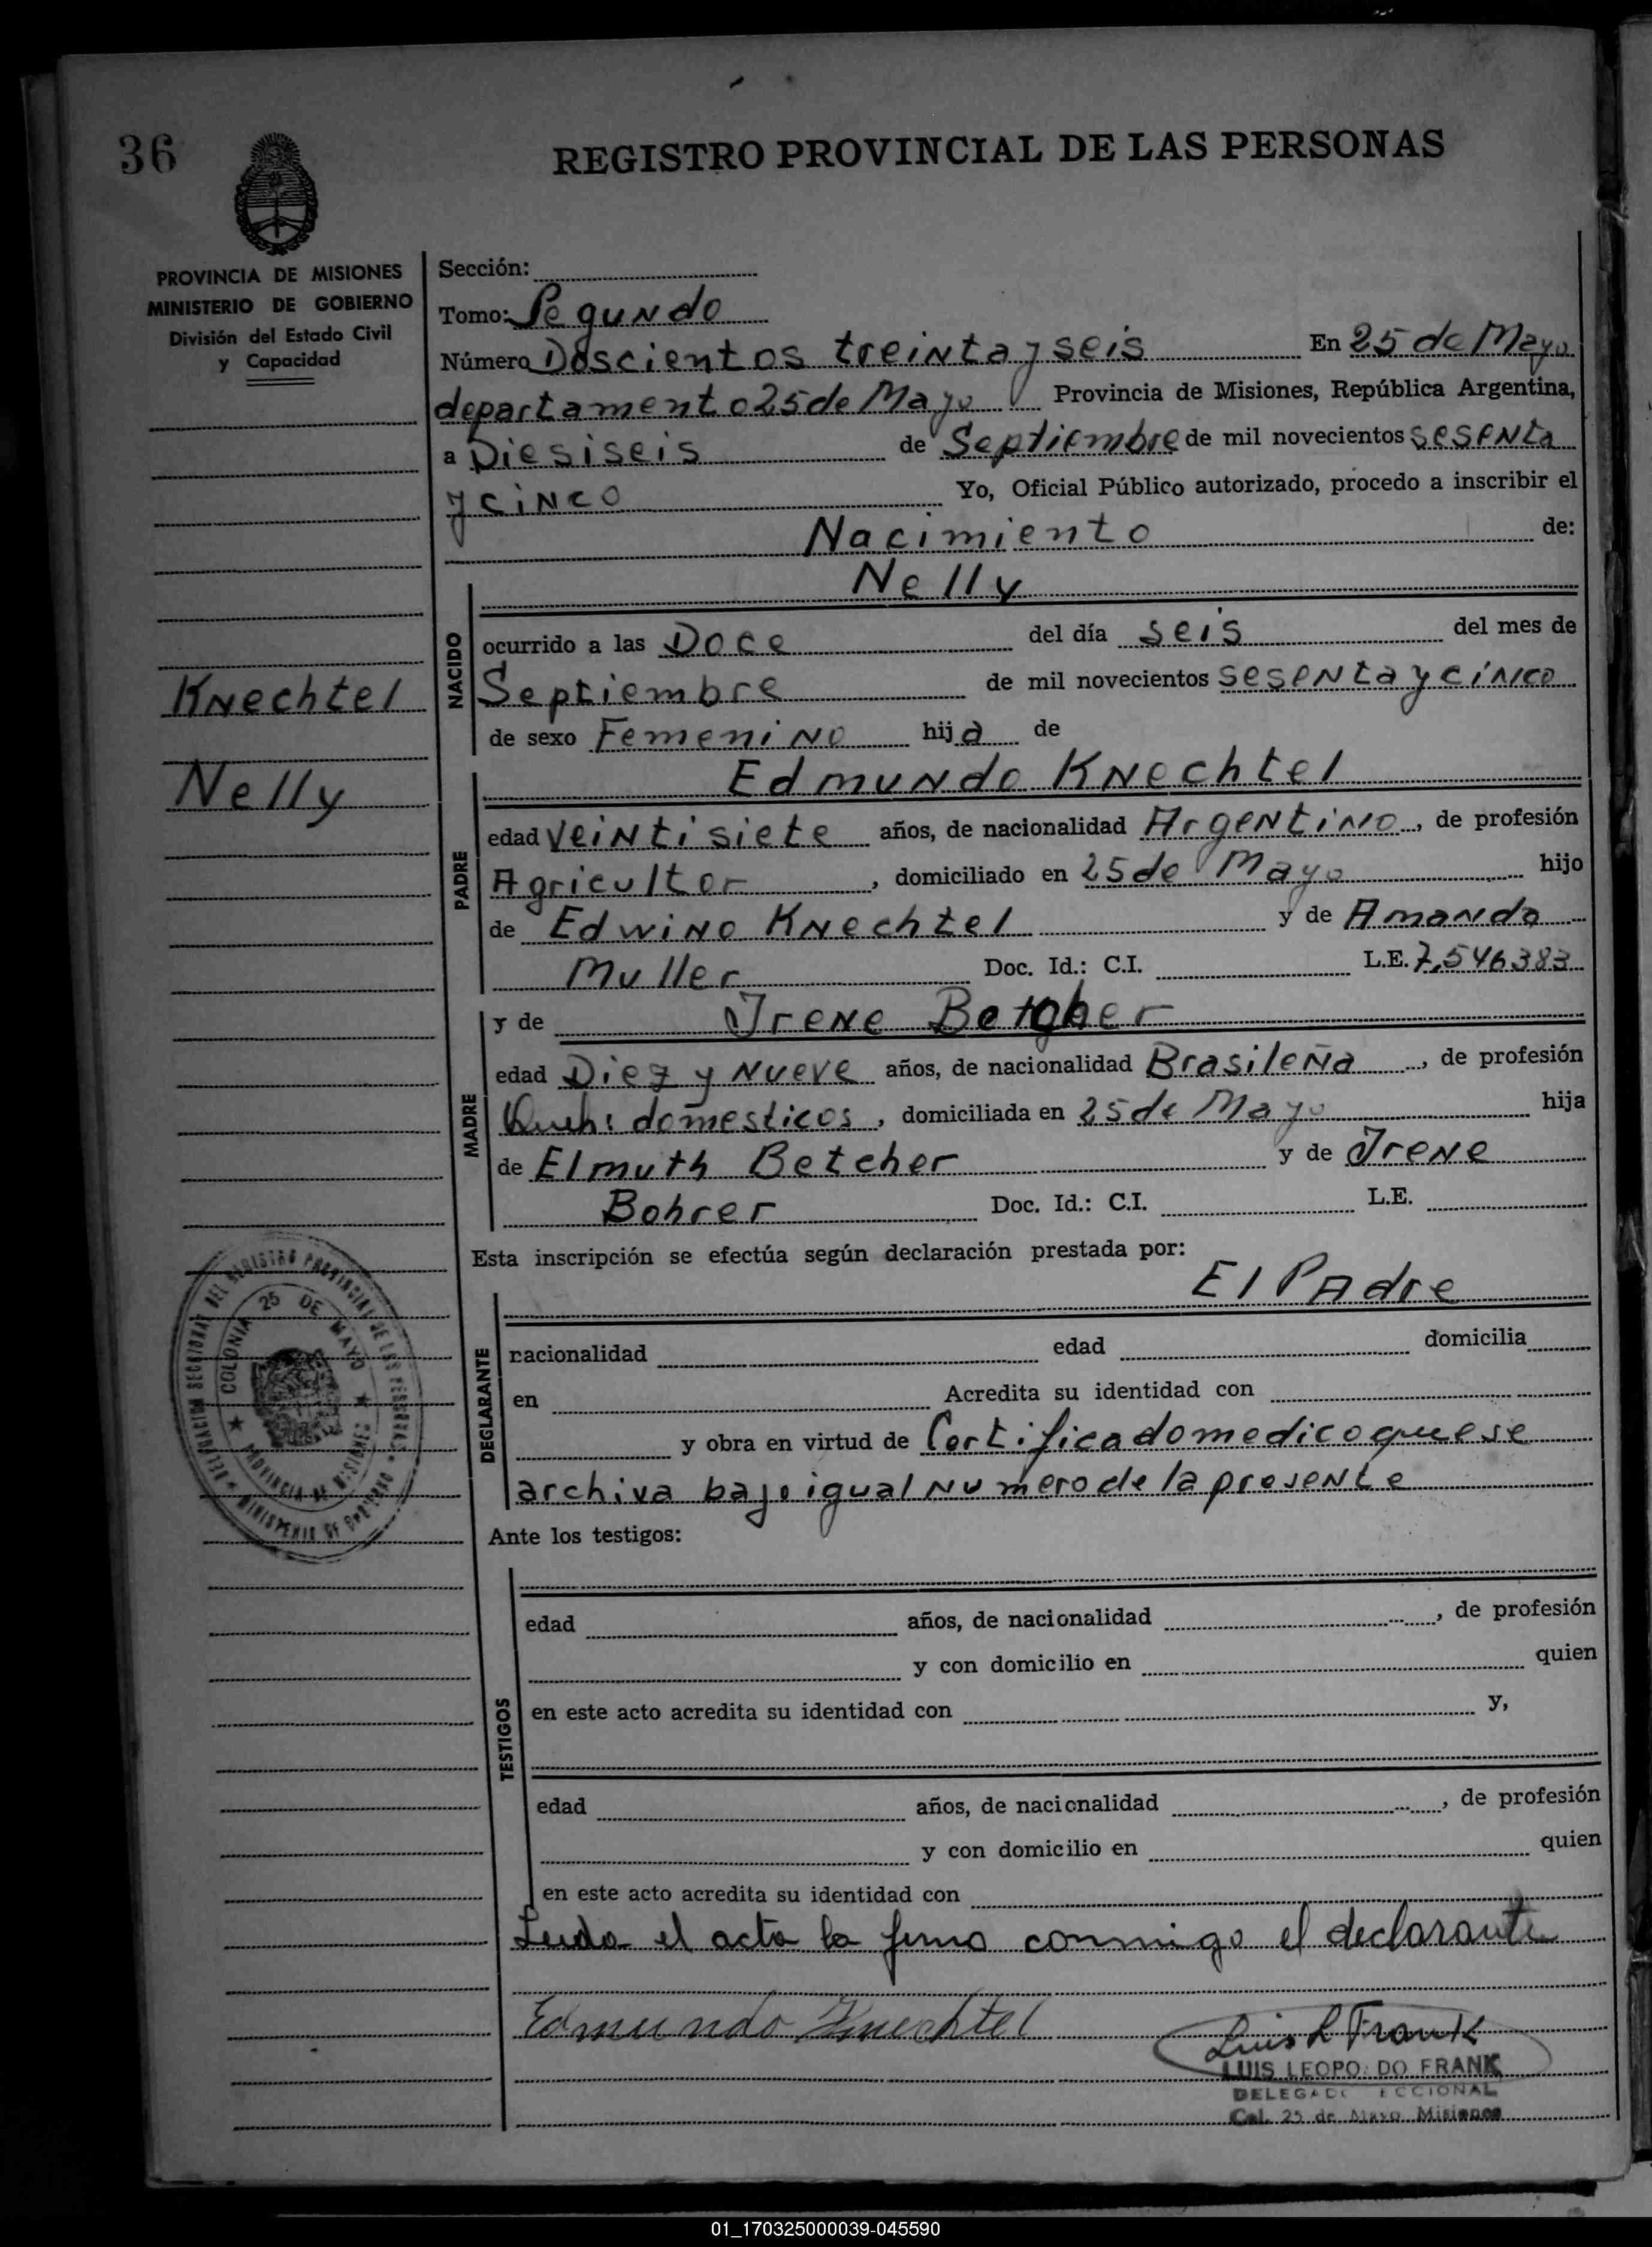 36
REGISTRO PROVINCIAL DE LAS PERSONAS
PROVINCIA DE MISIONES
MINISTERIO DE GOBIERNO
División del Estado Civil
y Capacidad
Knechtel
Nelly
Sección:
Tomo: Segundo
Número Doscientos treinta y seis En 25 de Mayo
departamento 25 de Mayo Provincia de Misiones, República Argentina,
a Diesiseis de Septiembre de mil novecientos sesenta
y cinco Yo, Oficial Público autorizado, procedo a inscribir el
Nacimiento de:
NACIDO
Nelly
ocurrido a las Doce del día seis del mes de
Septiembre de mil novecientos sesenta y cinco
de sexo Femenino hija de
PADRE
Edmundo Knechtel
edad veintisiete años, de nacionalidad Argentino, de profesión
Agricultor, domiciliado en 25 de Mayo hijo
de Edwino Knechtel y de Amanda
Muller Doc. Id.: C.I. L.E. 7,546383
MADRE
y de Irene Betgher
edad Diez y nueve años, de nacionalidad Brasileña, de profesión
Queh: domesticos, domiciliada en 25 de Mayo hija
de Elmuth Betcher y de Irene
Bohrer Doc. Id.: C.I. L.E.
Esta inscripción se efectúa según declaración prestada por:
DECLARANTE
El PAdre
nacionalidad edad domicilia
en Acredita su identidad con
y obra en virtud de Certificado medico que se
archiva bajo igual numero de la presente
DELEGACION SECCIONAL DEL REGISTRO PROVINCIAL DE LAS PERSONAS
MINISTERIO DE GOBIERNO
COLONIA 25 DE MAYO
PROVINCIA DE MISIONES
Ante los testigos:
TESTIGOS
edad años, de nacionalidad , de profesión
y con domicilio en quien
en este acto acredita su identidad con y,
edad años, de nacionalidad , de profesión
y con domicilio en quien
en este acto acredita su identidad con
Leida el acta la firma conmigo el declarante
Edmundo Knechtel
Luis L Frank
LUIS LEOPOLDO FRANK
DELEGADO SECCIONAL
Col. 25 de Mayo Misiones
01_170325000039-045590